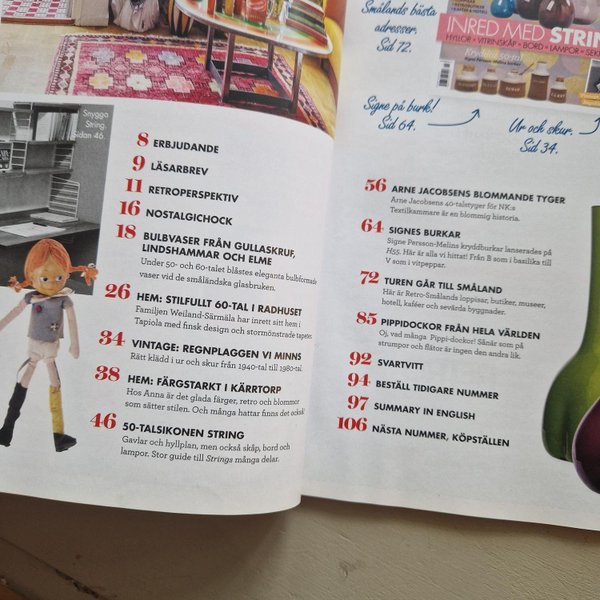 Snygga
String.
Sidan 46.
8 ERBJUDANDE
9 LÄSARBREV
11 RETROPERSPEKTIV
16 NOSTALGICHOCK
18 BULBVASER FRÅN GULLASKRUF,
LINDSHAMMAR OCH ELME
Under 50- och 60-talet blåstes eleganta bulbformade
vaser vid de småländska glasbruken.
26 HEM: STILFULLT 60-TAL I RADHUSET
Familjen Weiland-Särmåla har inrett sitt hem i
Tapiola med finsk design och stormönstrade tapeter.
34 VINTAGE: REGNPLAGGEN VI MINNS
Rätt klädd i ur och skur från 1940-tal till 1980-tal.
38 HEM: FÄRGSTARKT I KÄRRTORP
Hos Anna är det glada färger, retro och blommor
som sätter stilen. Och många hattar finns det också!
46 50-TALSIKONEN STRING
Gavlar och hyllplan, men också skåp, bord och
lampor. Stor guide till Strings många delar.
Smålands bästa
adresser.
Sid 72.
INRED MED STRIN
HYLLOR • VITRINSKÅP • BORD • LAMPOR • SEK
Signe på burk!
Sid 64.
Ur och skur.
Sid 34.
56 ARNE JACOBSENS BLOMMANDE TYGER
Arne Jacobsens 40-talstyger för NK:s
Textilkammare är en blommig historia.
64 SIGNES BURKAR
Signe Persson-Melins kryddburkar lanserades på
H55. Här är alla vi hittat! Från B som i basilika till
V som i vitpeppar.
72 TUREN GÅR TILL SMÅLAND
Här är Retro-Smålands loppisar, butiker, museer,
hotell, kaféer och sevärda byggnader.
85 PIPPIDOCKOR FRÅN HELA VÄRLDEN
Oj, vad många Pippi-dockor! Sånär som på
strumpor och flätor är ingen den andra lik.
92 SVARTVITT
94 BESTÄLL TIDIGARE NUMMER
97 SUMMARY IN ENGLISH
106 NÄSTA NUMMER, KÖPSTÄLLEN